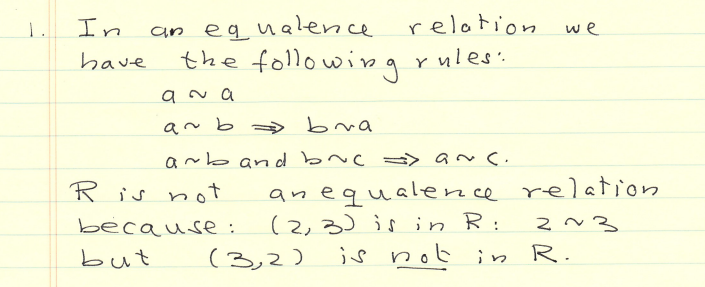 1. In an equalence relation we
have the following rules:
a ~ a
a ~ b ⇒ b~a
a~b and b~c ⇒ a~c.
R is not an equalence relation
because: (2,3) is in R: 2~3
but (3,2) is not in R.